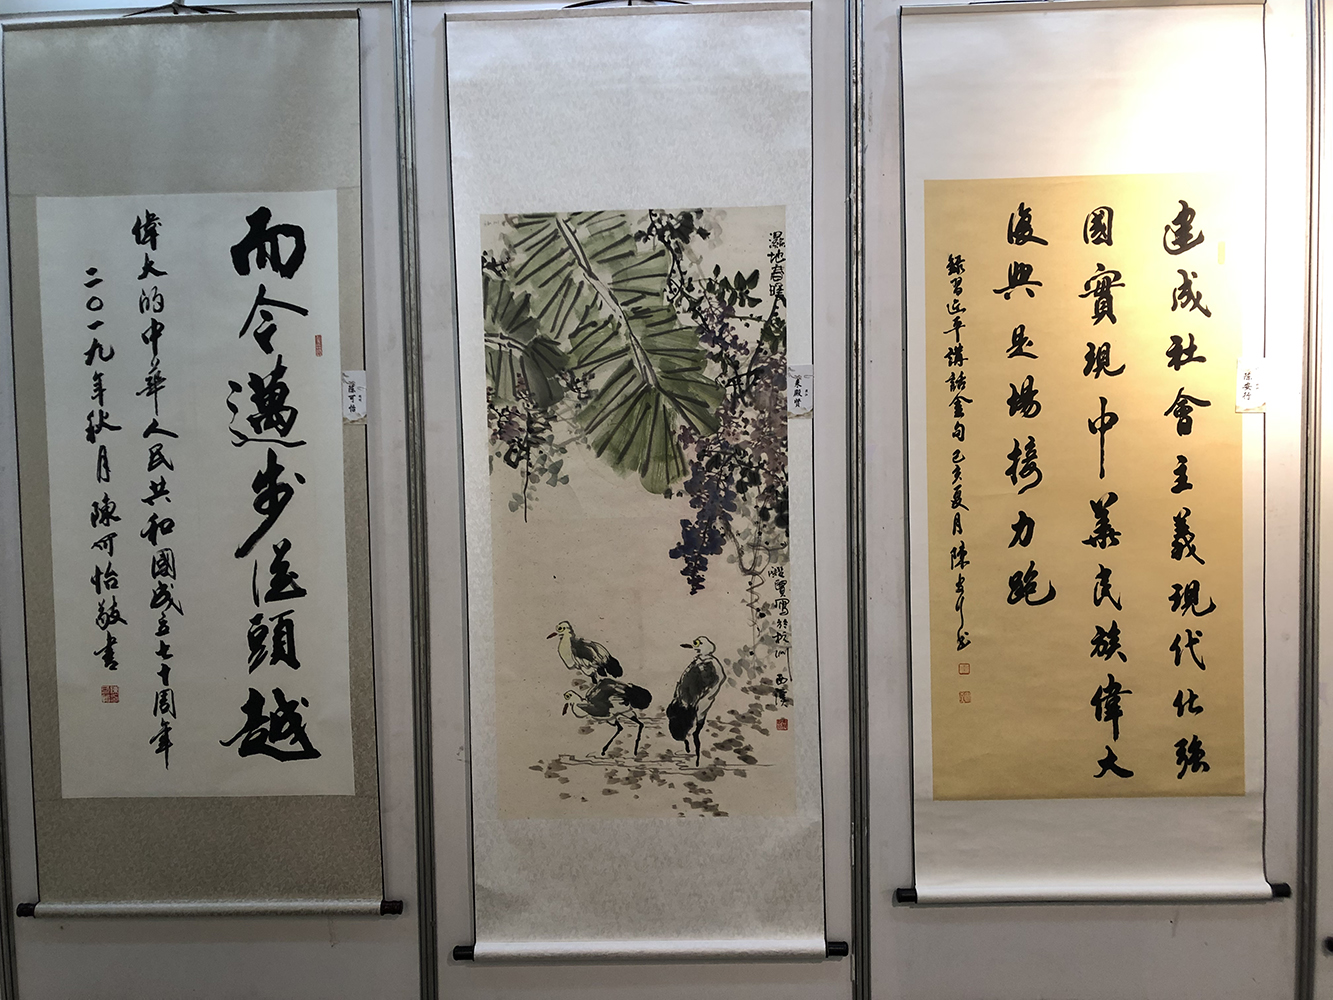 而今邁步從頭越
偉大的中華人民共和國成立七十周年
二〇一九年秋月陳可怡敬書
陈可怡
濕地春暖
殿賢寫於杭州
西溪
建成社會主義現代化強
國實現中華民族偉大
復興是場接力跑
錄習近平講話金句己亥夏月陳安行書
陈安行